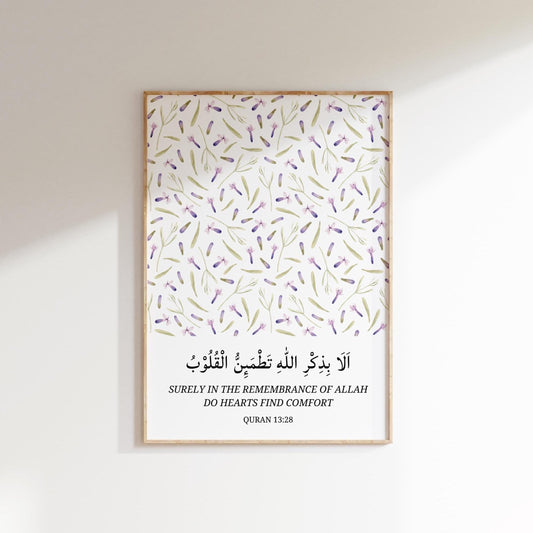 اَلَا بِذِكْرِ اللّٰهِ تَطْمَىِٕنُّ الْقُلُوْبُ
SURELY IN THE REMEMBRANCE OF ALLAH
DO HEARTS FIND COMFORT
QURAN 13:28